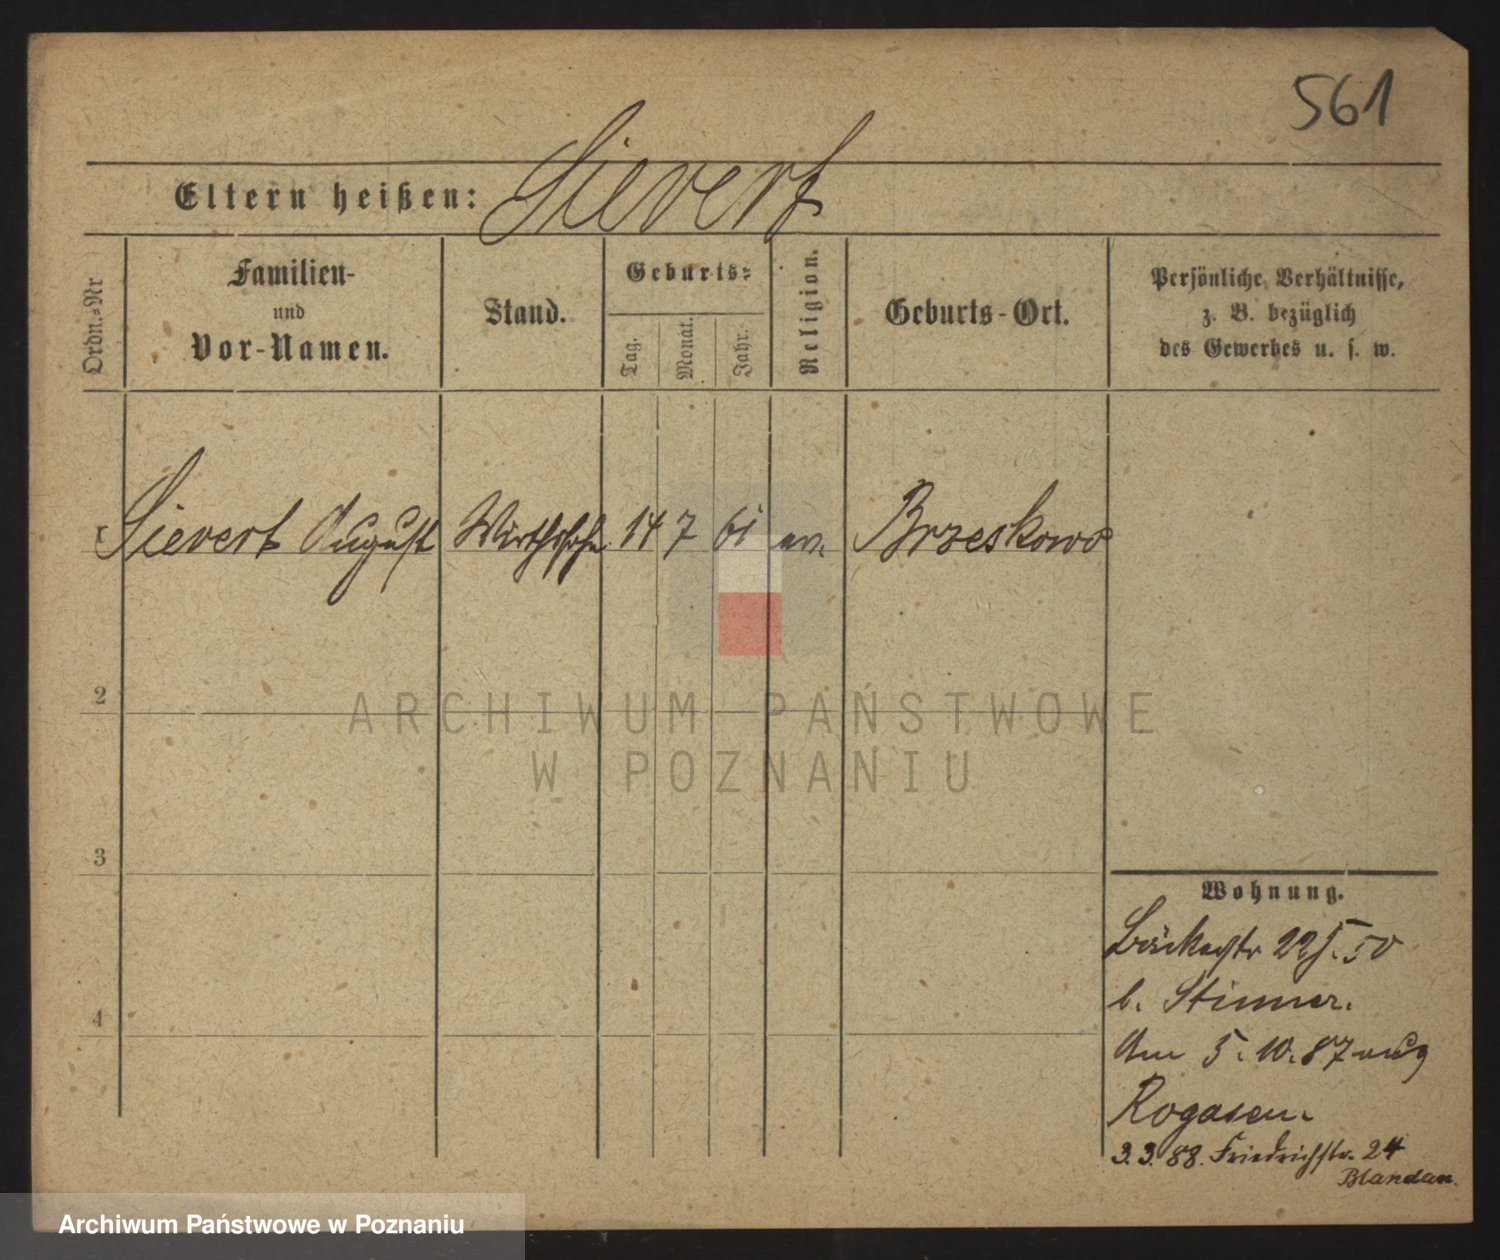 561
Eltern heißen: Sievert
Ordn.=Nr
Familien-
und
Vor-Namen.
Stand.
Geburts=
Tag.
Monat.
Jahr.
Religion.
Geburts-Ort.
Persönliche Verhältnisse,
z. B. bezüglich
des Gewerbes u. s. w.
1 Sievert August Wirthssohn 14 7 61 ev. Brzeskowo
2
3
4
ARCHIWUM PAŃSTWOWE
W POZNANIU
Wohnung.
Bäckerstr 22
b. Stimmer.
Am 5. 10. 87
Rogasen.
3. 3. 88. Friedrichstr. 24
Blandau.
Archiwum Państwowe w Poznaniu